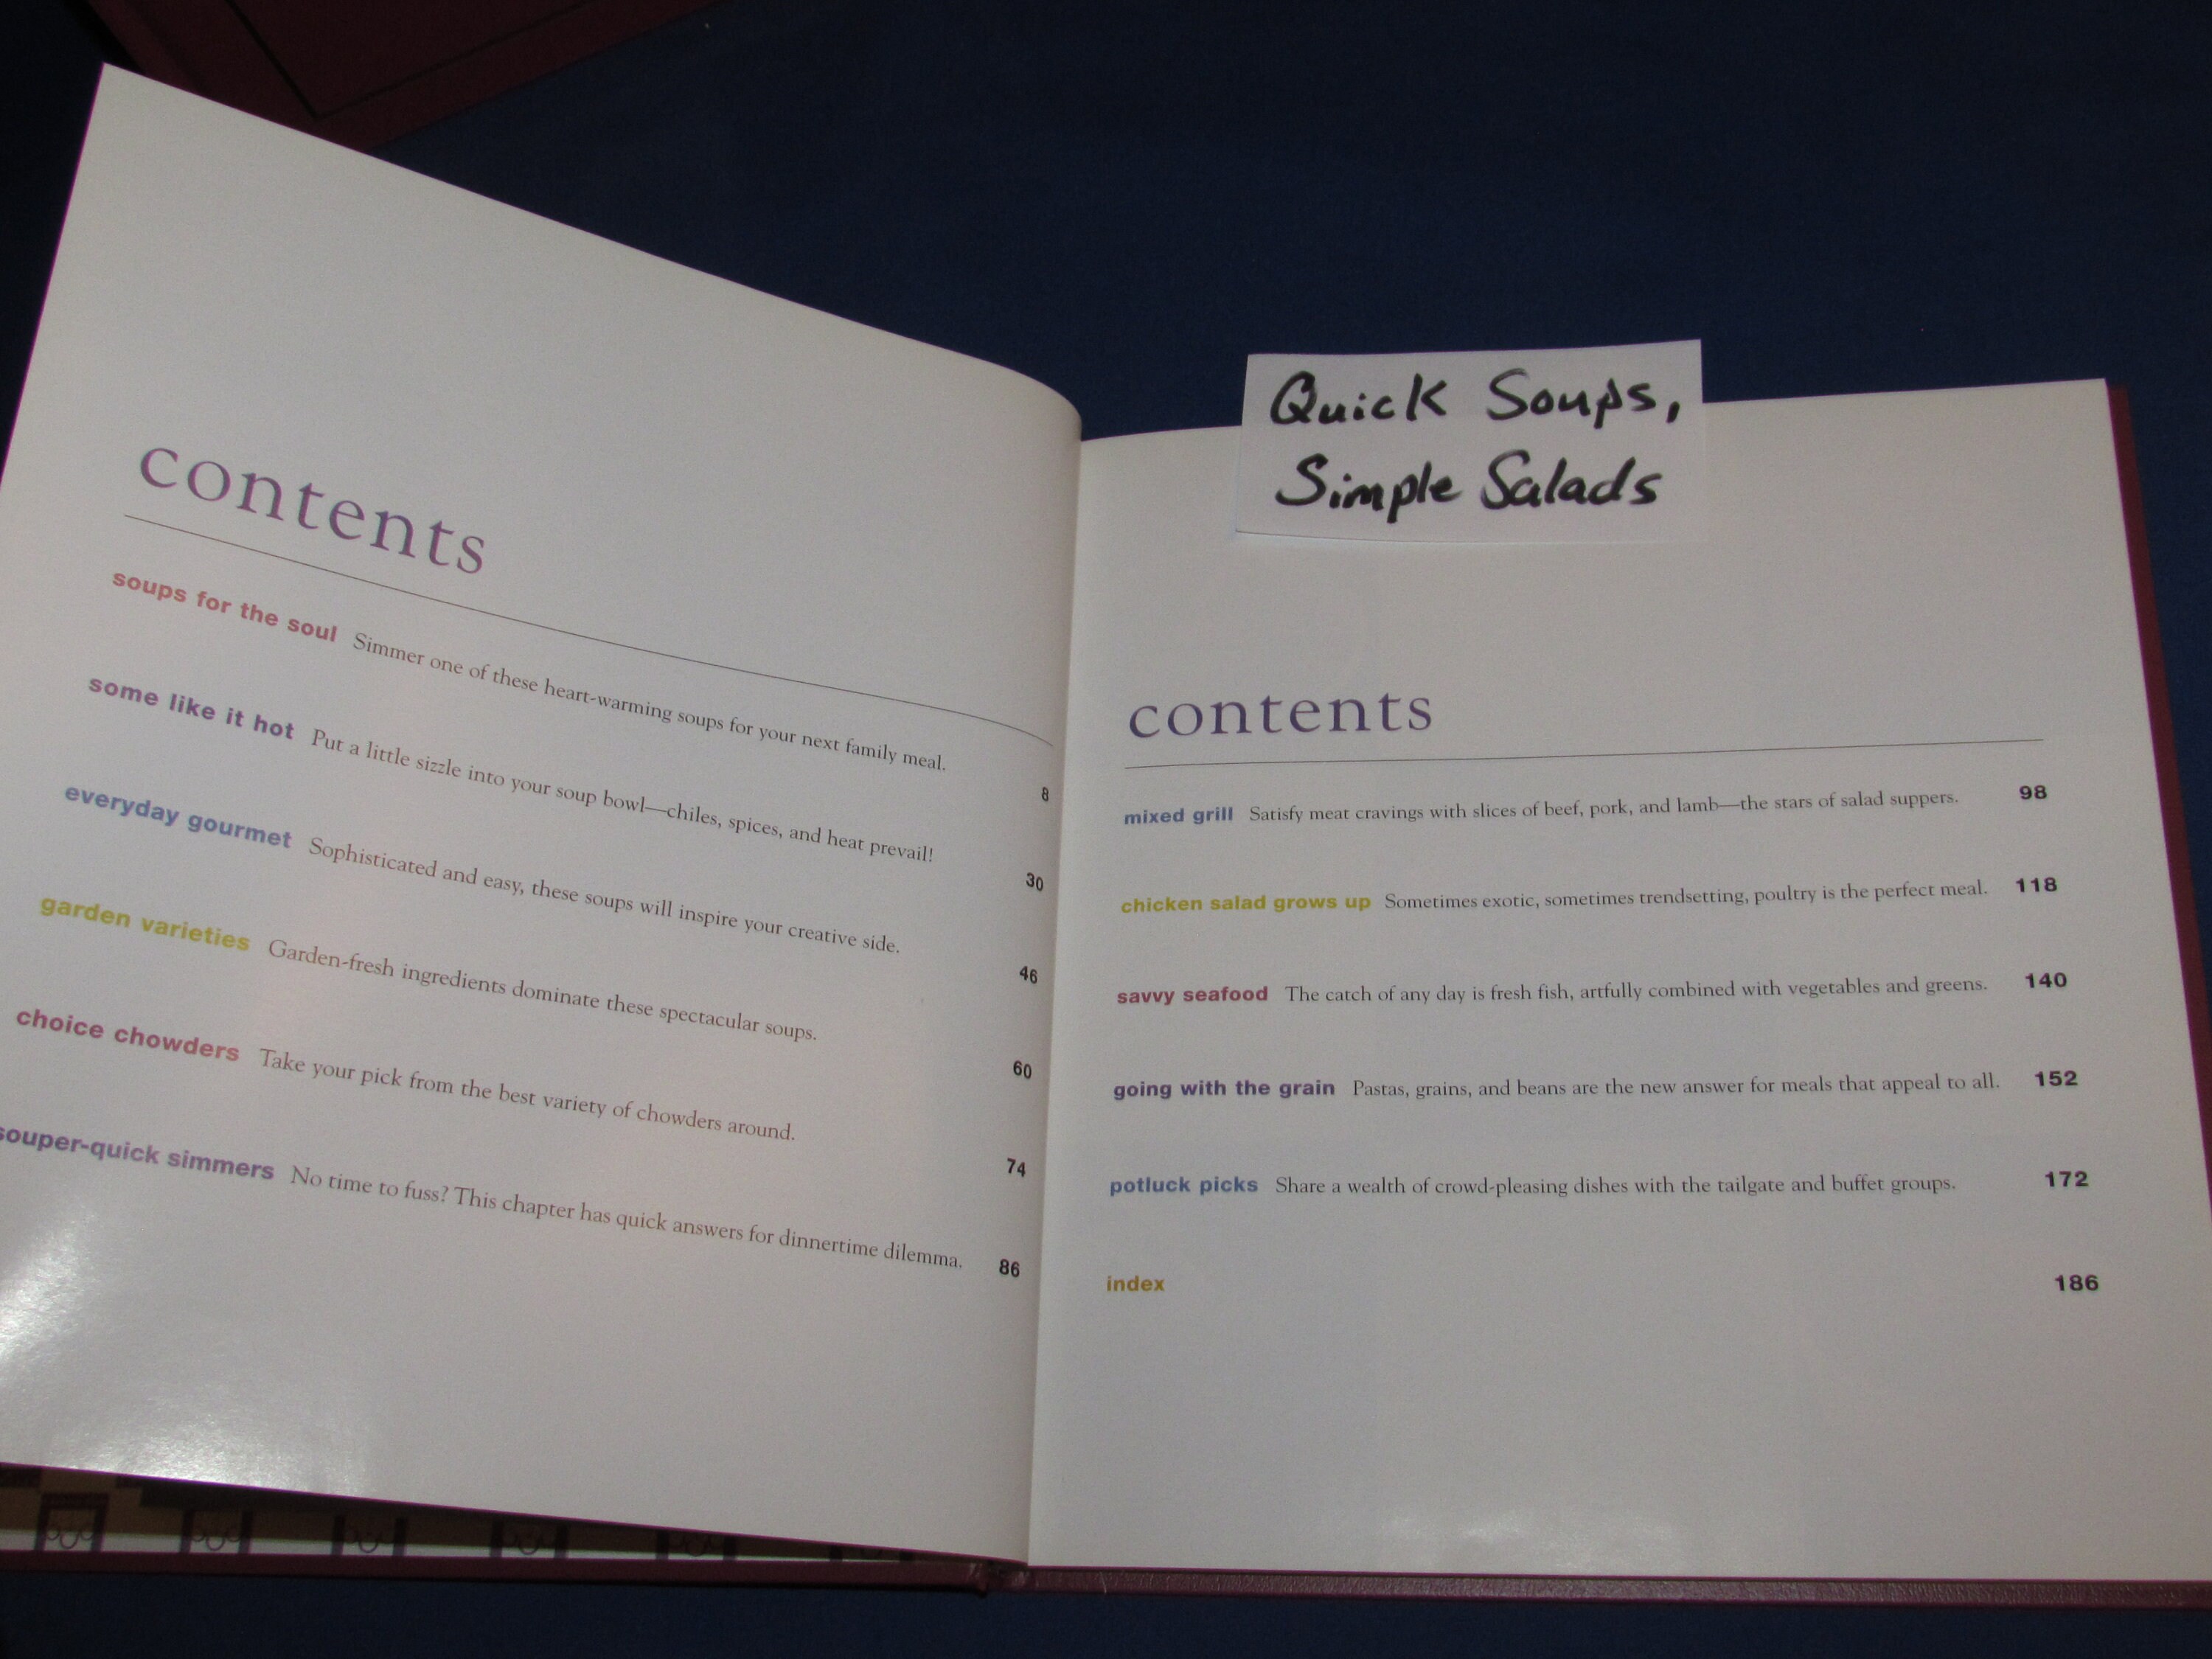 Quick Soups,
Simple Salads
contents
soups for the soul Simmer one of these heart-warming soups for your next family meal. 8
some like it hot Put a little sizzle into your soup bowl—chiles, spices, and heat prevail! 30
everyday gourmet Sophisticated and easy, these soups will inspire your creative side. 46
garden varieties Garden-fresh ingredients dominate these spectacular soups. 60
choice chowders Take your pick from the best variety of chowders around. 74
souper-quick simmers No time to fuss? This chapter has quick answers for dinnertime dilemma. 86
contents
mixed grill Satisfy meat cravings with slices of beef, pork, and lamb—the stars of salad suppers. 98
chicken salad grows up Sometimes exotic, sometimes trendsetting, poultry is the perfect meal. 118
savvy seafood The catch of any day is fresh fish, artfully combined with vegetables and greens. 140
going with the grain Pastas, grains, and beans are the new answer for meals that appeal to all. 152
potluck picks Share a wealth of crowd-pleasing dishes with the tailgate and buffet groups. 172
index 186